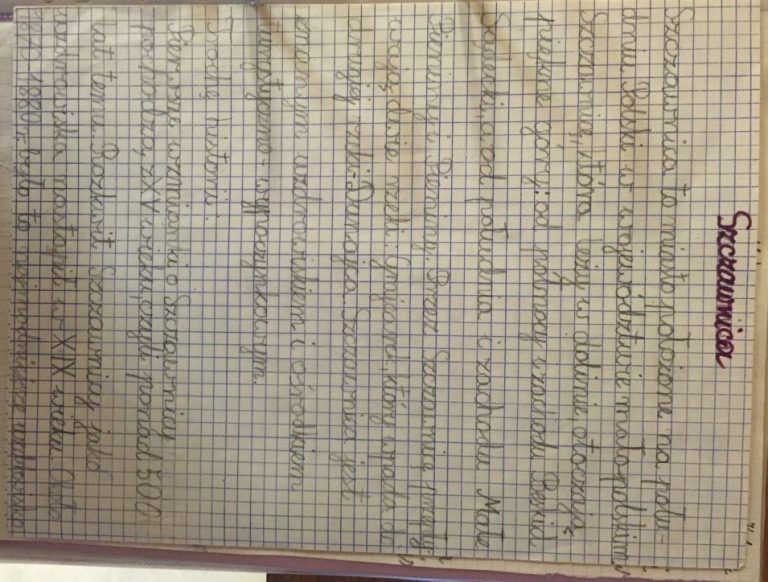 Szczawnica
Szczawnica to miasto położone na połu-
dniu Polski w województwie małopolskim.
Szczawnicę, która leży w dolinie, otaczają
piękne góry: od północy i zachodu Beskid
Sądecki, a od południa i zachodu Małe
Pieniny i Pieniny. Przez Szczawnicę płyną
dwie rzeki: Grajcarek, który wpada do
drugiej rzeki - Dunajca. Szczawnica jest
znanym uzdrowiskiem i ośrodkiem
turystyczno - wypoczynkowym.
Trochę historii.
Pierwsze wzmianki o Szczawnicy
pochodzą z XV wieku, czyli ponad 500
lat temu. Rozkwit Szczawnicy jako
uzdrowiska nastąpił w XIX wieku. Około
1880 r. było to